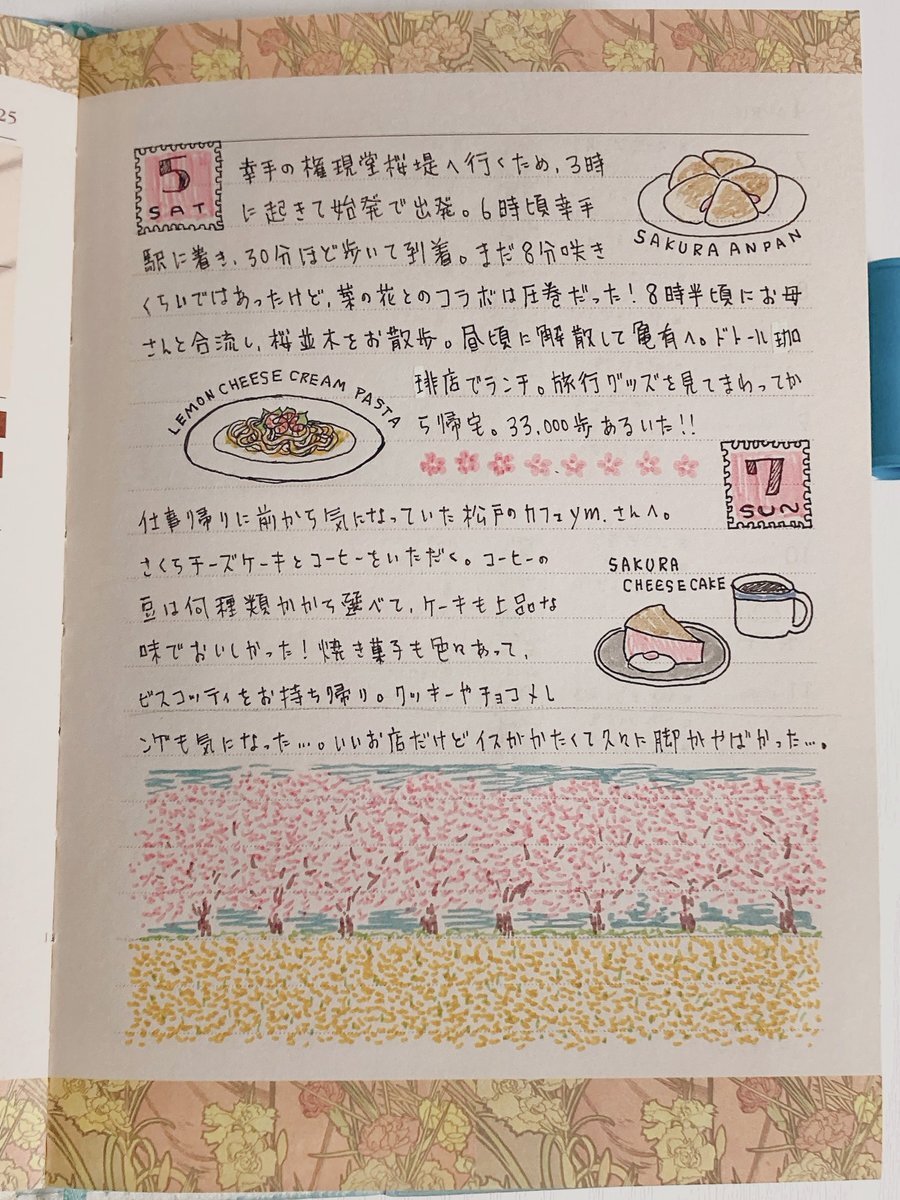 25
5
SAT
幸手の権現堂桜堤へ行くため、3時
に起きて始発で出発。6時頃幸手
駅に着き、30分ほど歩いて到着。まだ8分咲き
くらいではあったけど、菜の花とのコラボは圧巻だった！8時半頃にお母
さんと合流し、桜並木をお散歩。昼頃に解散して亀有へ。ドトール珈
琲店でランチ。旅行グッズを見てまわってか
ら帰宅。33,000歩あるいた!!
SAKURA ANPAN
LEMON CHEESE CREAM PASTA
7
SUN
仕事帰りに前から気になっていた松戸のカフェym.さんへ。
さくらチーズケーキとコーヒーをいただく。コーヒーの
豆は何種類かから選べて、ケーキも上品な
味でおいしかった！焼き菓子も色々あって、
ビスコッティをお持ち帰り。クッキーやチョコメレ
ンゲも気になった…。いいお店だけどイスがかたくて久々に脚がやばかった…。
SAKURA
CHEESECAKE